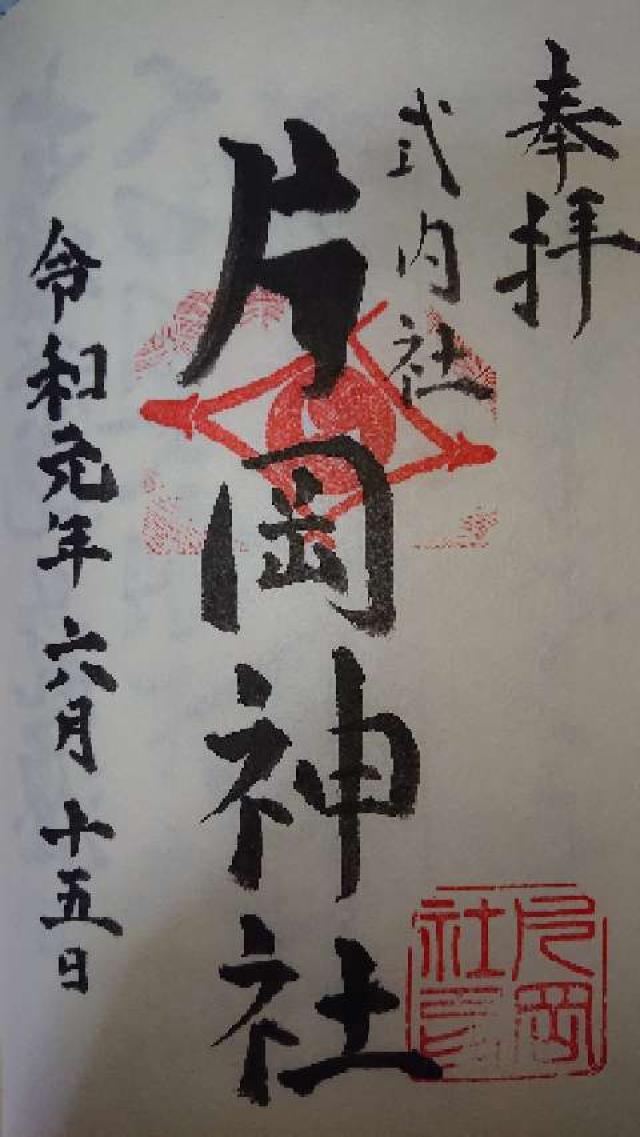 奉拝
式内社
片岡神社
令和元年六月十五日
片岡
社印